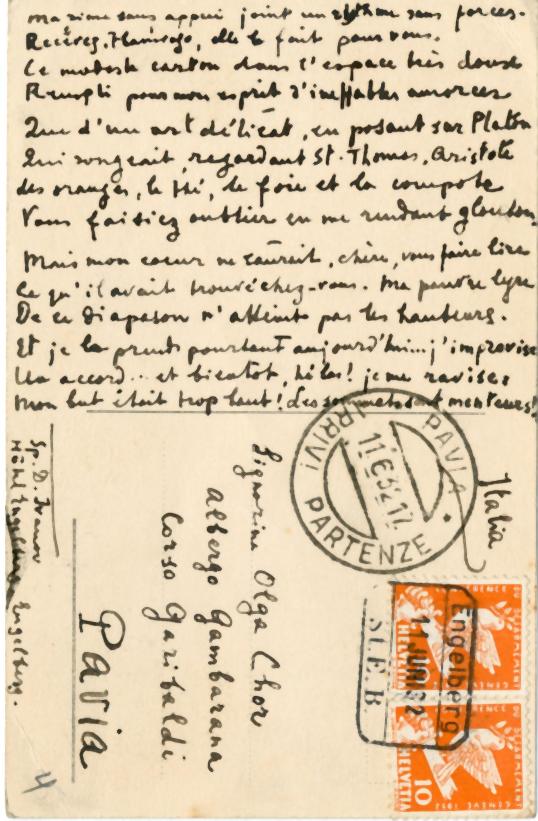 Ma rime sans appui joint un rythme sans forces.
Recevez, Flamingo, elle le fait pour vous.
Ce modeste carton dans l'espace très doux
Rempli pour mon esprit d'ineffables amorces
Que d'un art délicat, en posant sur Platon
Qui songeait, regardant St. Thomas, Aristote
des oranges, le thé, le foie et la compote
Vous faisiez oublier en me rendant glouton.
Mais mon coeur ne saurait, chère, vous faire lire
Ce qu'il avait trouvé chez-vous. Ma pauvre lyre
De ce diapason n'atteint pas les hauteurs.
Et je la prends pourtant aujourd'hui... j'improvise
Un accord... et bientôt, hélas! je me ravise:
Mon but était trop haut! Les sommets sont menteurs!
Sp. D. Ivanov
Hôtel Engelberg Engelberg.
Signorina Olga Chor
Albergo Gambarana
Corso Garibaldi
Pavia
Italia
PAVIA
ARRIVI PARTENZE
11.6.32.17
Engelberg
11.JUNI 32
HELVETIA
GENÈVE 1932
HELVETIA
10
GENÈVE 1932
4